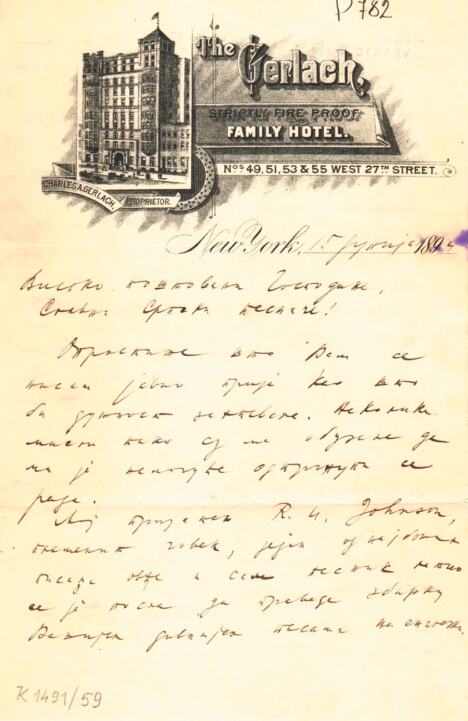 P 782
The Gerlach,
STRICTLY FIRE PROOF
FAMILY HOTEL.
Nos 49, 51, 53 & 55 WEST 27TH STREET.
CHARLES A. GERLACH, PROPRIETOR.
New York, 15 јунија 189
Високо поштовани Господине,
Славни Српски песниче!
Опростите што Вам се
писац јавио прије као што
би дужност захтевала.
мисли тако су ме обузеле да
ми је немогуће одтргнути се
рада.
Мој пријатељ R. U. Johnson,
племенит човек, један од најбољих
писаца овде и сам песник
се је после да преведе збирку
Ваших дивнијех песама на енглески.
K 1491/59